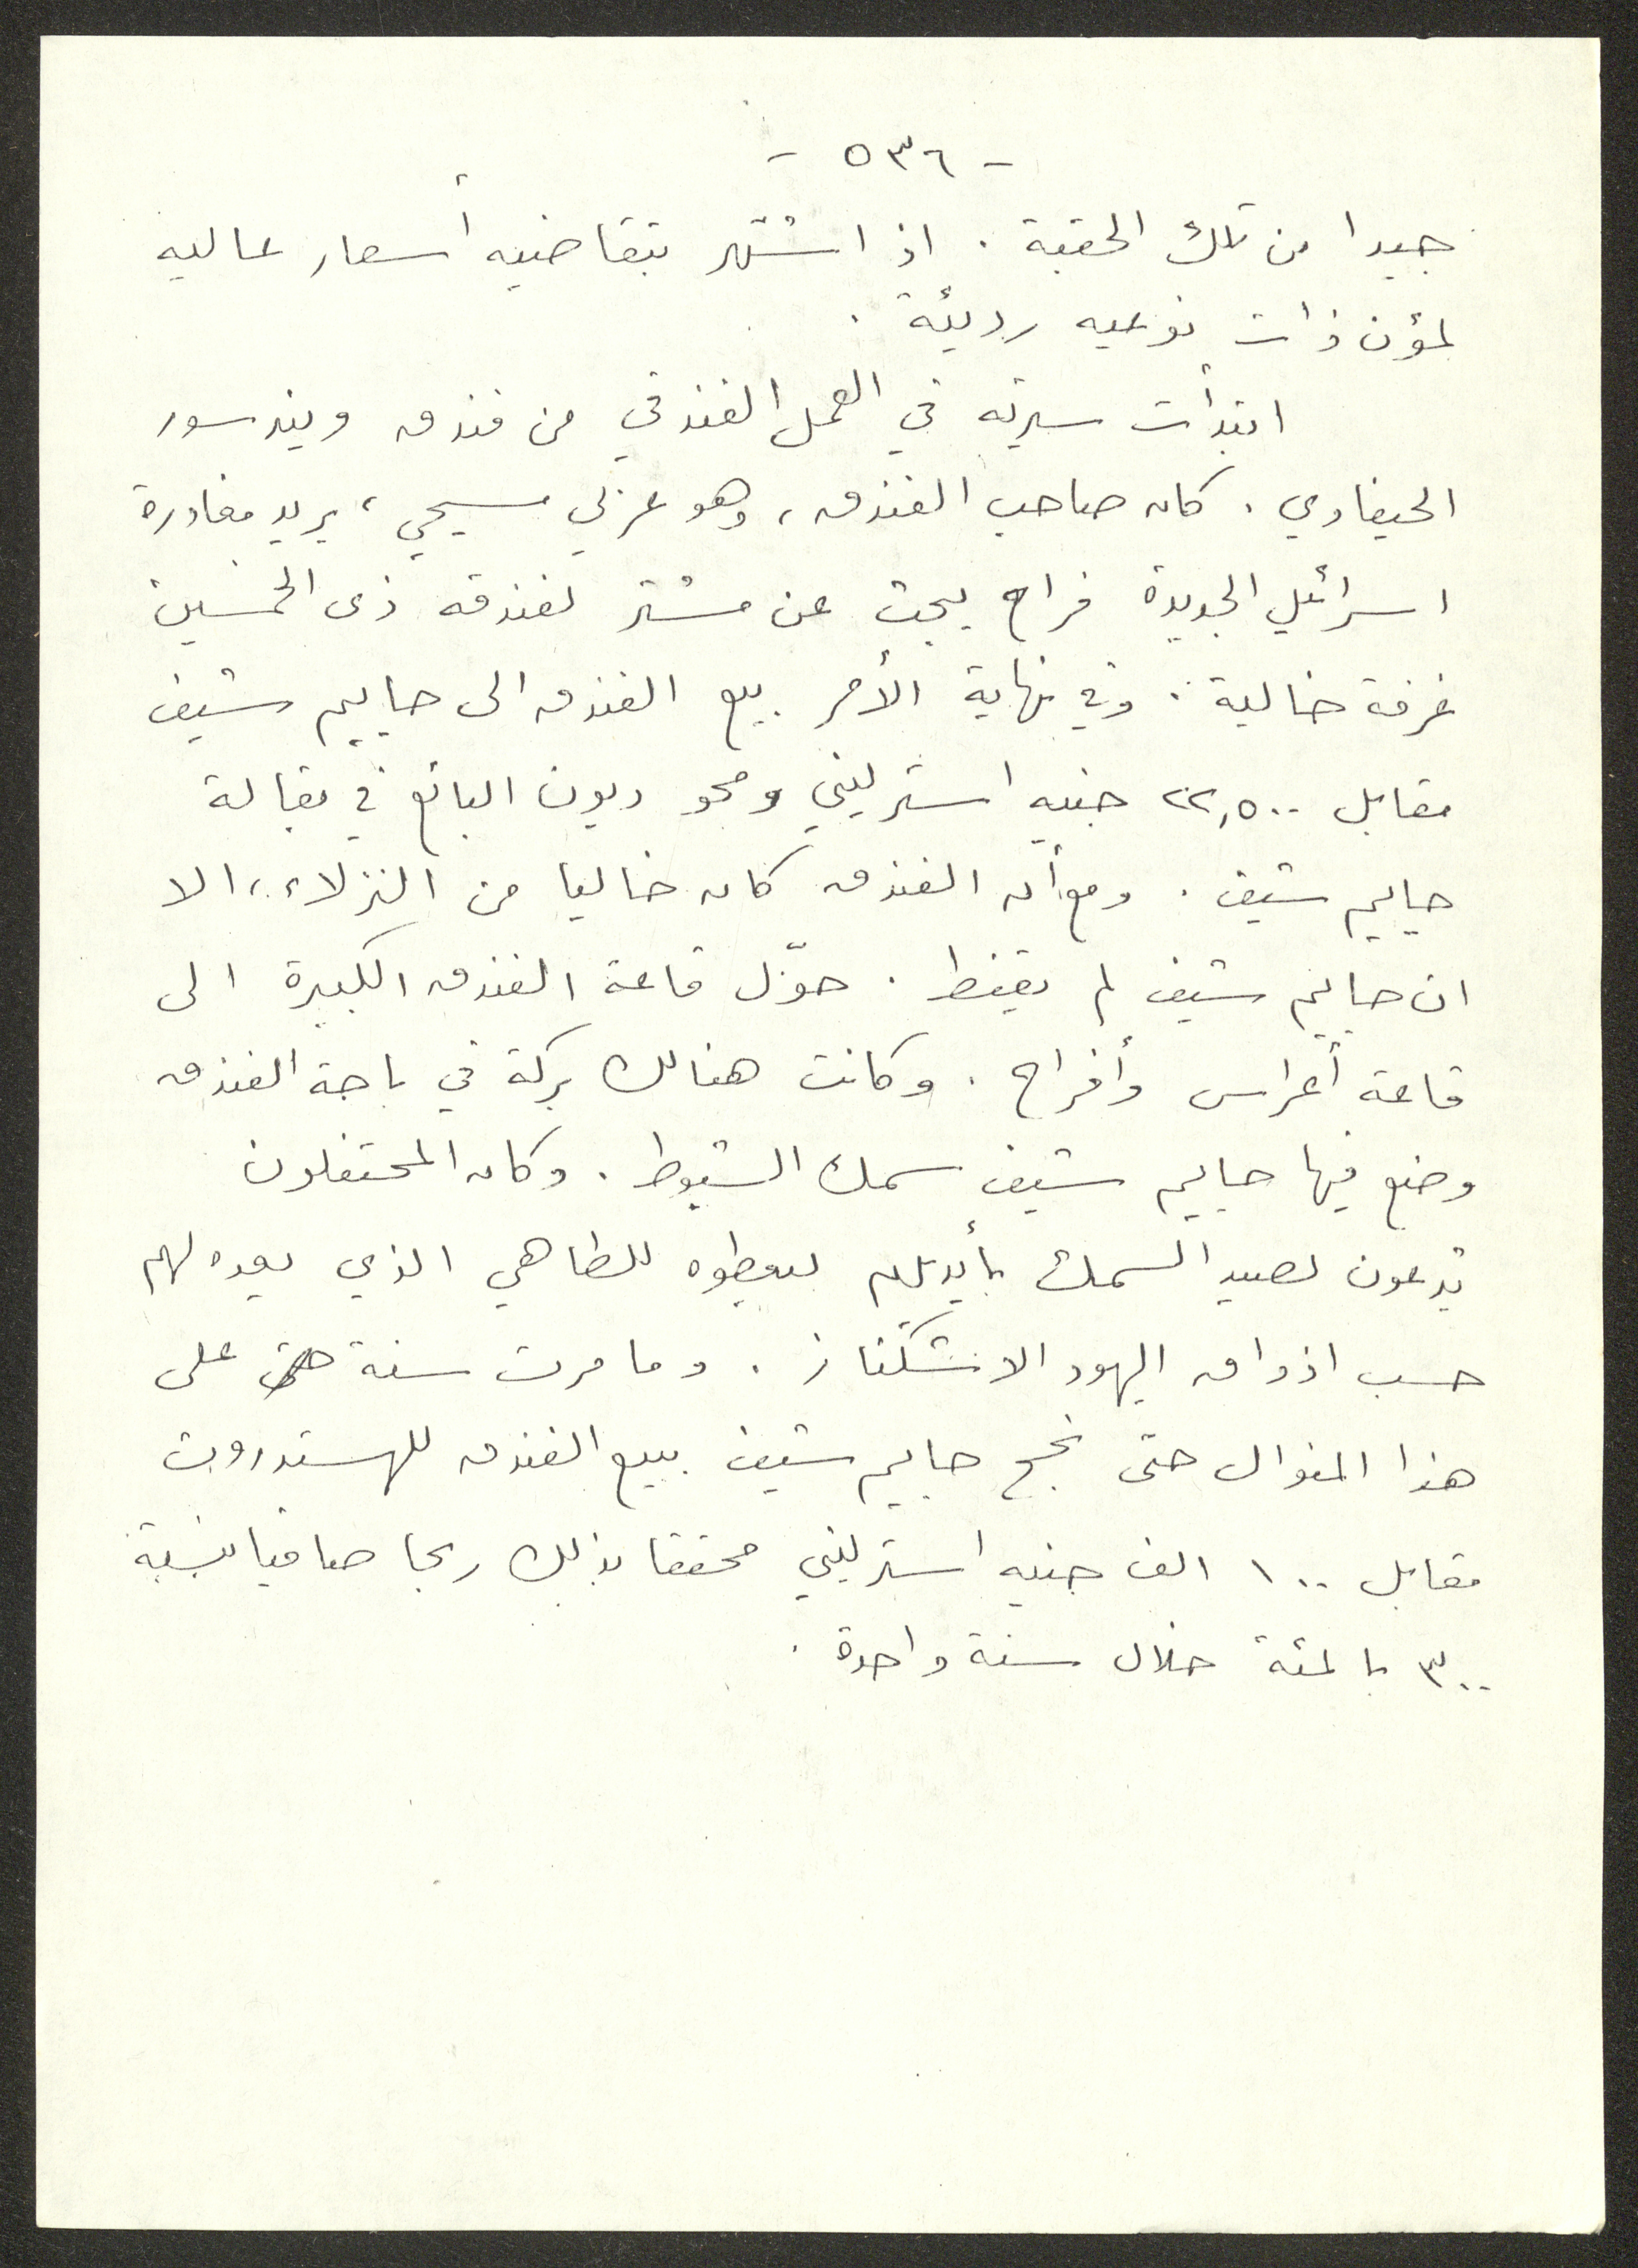 - ٥٣٦ -
جيدا من تلك الحقبة . اذ اشتهر بتقاضيه أسعار عاليه
لمؤن ذات نوعيه رديئة .
ابتدأت سيرته في العمل الفندقي من فندق ويندسور
الحيفاوي . كان صاحب الفندق ، وهو عربي مسيحي ، يريد مغادرة
اسرائيل الجديدة فراح يبحث عن مشتر لفندقه ذى الخمسين
غرفة خالية . وفي نهاية الأمر بيع الفندق الى حاييم شيف
مقابل ٢٢,٥٠٠ جنيه استرليني ومحو ديون البائع في بقالة
حاييم شيف . ومع أن الفندق كان خاليا من النزلاء ، الا
ان حاييم شيف لم يقنط . حوّل قاعة الفندق الكبيرة الى
قاعة أعراس وأفراح . وكانت هنالك بركة في باحة الفندق
وضع فيها حاييم شيف سمك الشبوط . وكان المحتفلون
يدعون لصيد السمك بأيديهم ليعطوه للطاهي الذي يعده لهم
حسب اذواق اليهود الاشكناز . وما مرت سنة على
هذا المنوال حتى نجح حاييم شيف ببيع الفندق للهستدروت
مقابل ١٠٠ الف جنيه استرليني محققا بذلك ربحا صافيا بنسبة
٣٠٠ بالمئة خلال سنة واحدة .